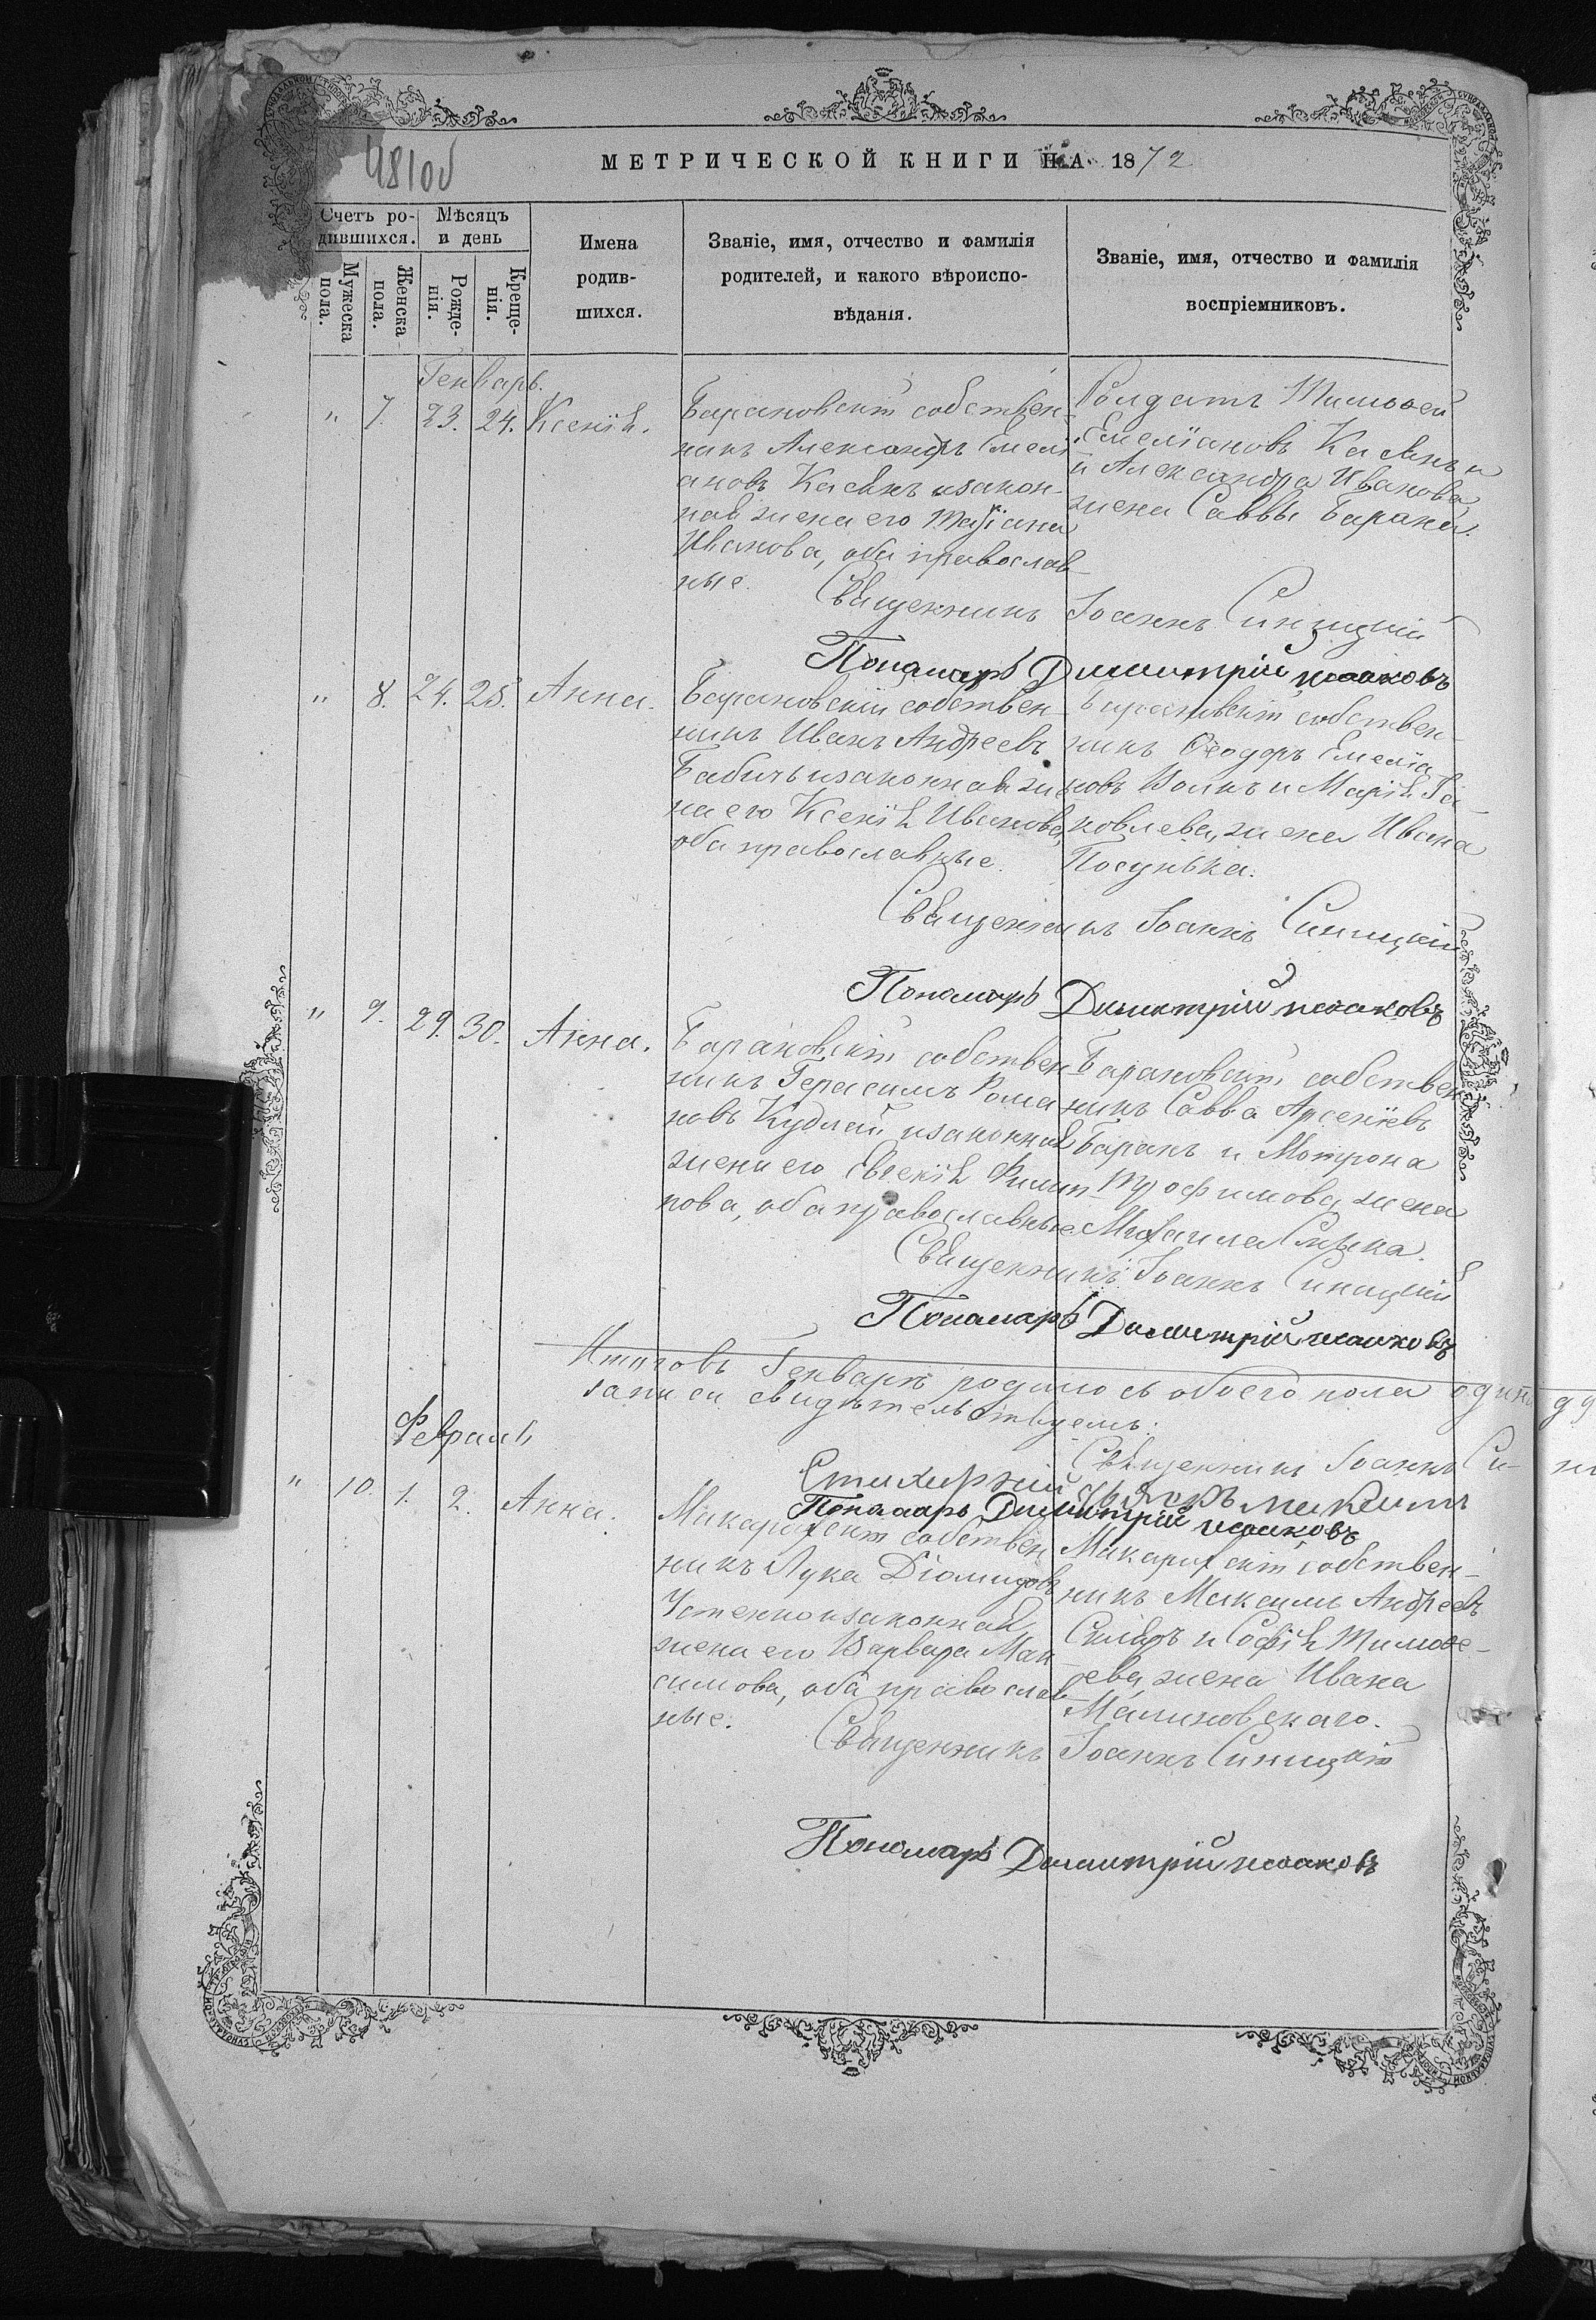 481об
МЕТРИЧЕСКОЙ КНИГИ НА 1872
Счетъ ро-
дившихся.
Мѣсяцъ
и день
Имена
родив-
шихся.
Званіе, имя, отчество и фамилія
родителей, и какого вѣроиспо-
вѣданія.
Званіе, имя, отчество и фамилія
воспріемниковъ.
Мужеска
пола.
Женска
пола.
Рожде-
нія.
Креще-
нія.
Генварь.
" 7. 23. 24. Ксенія.
Барановскій собствен-
никъ Александръ Емелі
ановъ Касянъ изакон-
ная жена его Татіана
Иванова, оба православ-
ные.
Солдатъ Тимоѳей
Емеліановъ Касянъ и
и Александра Иванова
жена Саввы Барана.
Священникъ Іоаннъ Синицкій
Пономарь Димитрій Исаковъ
" 8. 24. 25. Анна.
Барановскій собствен-
никъ Иванъ Андреевъ
Бабичъ изаконная же
на его Ксенія Иванова,
оба православные.
Барановскій собствен-
никъ Ѳеодоръ Емеліа
новъ Волкъ и Марія Іа-
ковлева, жена Ивана
Посунька.
Священникъ Іоаннъ Синицкій
Пономарь Димитрій Исаковъ
" 9. 29. 30. Анна.
Барановскій собствен
никъ Герасимъ Рома
новъ Кудлай изаконная
жена его Евгенія Филип-
пова, оба православные.
Барановскій собствен
никъ Савва Арсеніевъ
Баранъ и Мотрона
Трофимова, жена
Михаила
Священникъ Іоаннъ Синицкій
Пономарь Димитрій Исаковъ
Итогов Генварѣ родилось обоего пола одинад
записи свидѣтельствуемъ:
Священникъ Іоаннъ Си-
Стихирный дьячокъ Максимъ
Пономарь Димитрій Исаковъ
Февраль
" 10. 1. 2. Анна.
Макарихскій собствен
никъ Лука Діомидовъ
Устенко изаконная
жена его Варвара Мак-
симова, оба православ-
ные.
Макарихскій собствен-
никъ Максимъ Андреевъ
и Софія Тимоѳе-
ева, жена Ивана
Малиновскаго.
Священникъ Іоаннъ Синицкій
Пономарь Димитрій Исаковъ